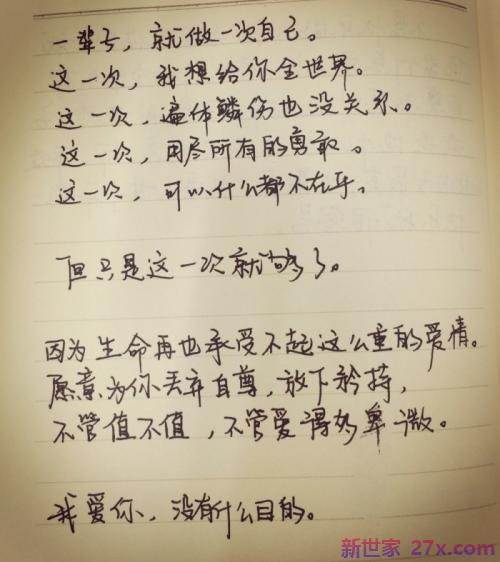 一辈子，就做一次自己。
这一次，我想给你全世界。
这一次，遍体鳞伤也没关系。
这一次，用尽所有的勇敢。
这一次，可以什么都不在乎。
但只是这一次就够了。
因为生命再也承受不起这么重的爱情。
愿意为你丢弃自尊，放下矜持，
不管值不值，不管爱得多卑微。
我爱你，没有什么目的。
新世家 27x.com